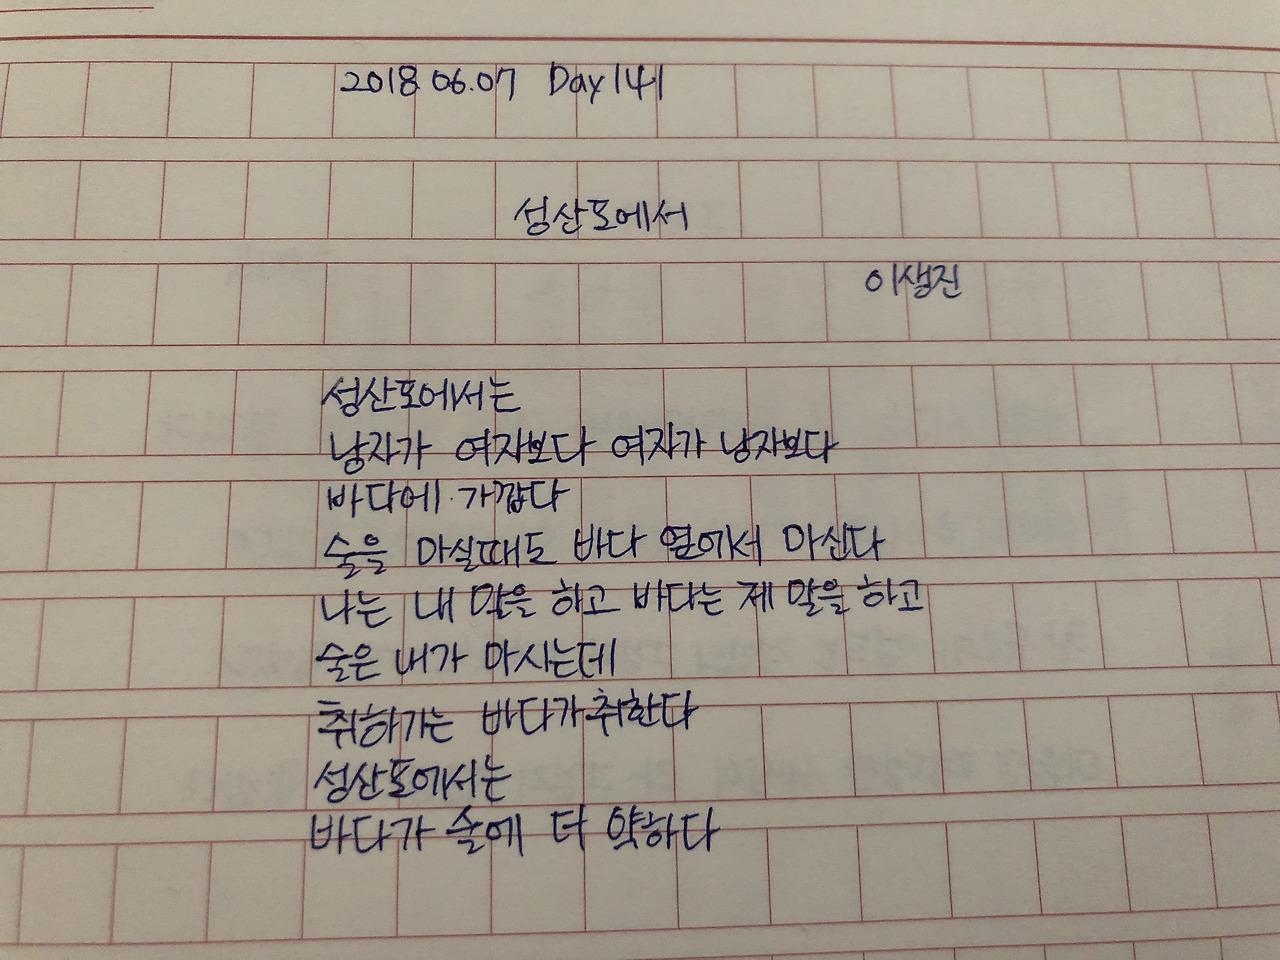 2018.06.07 Day141
성산포에서
이생진
성산포에서는
남자가 여자보다 여자가 남자보다
바다에 가깝다
술을 마실때도 바다 옆에서 마신다
나는 내 말을 하고 바다는 제 말을 하고
술은 내가 마시는데
취하기는 바다가 취한다
성산포에서는
바다가 술에 더 약하다